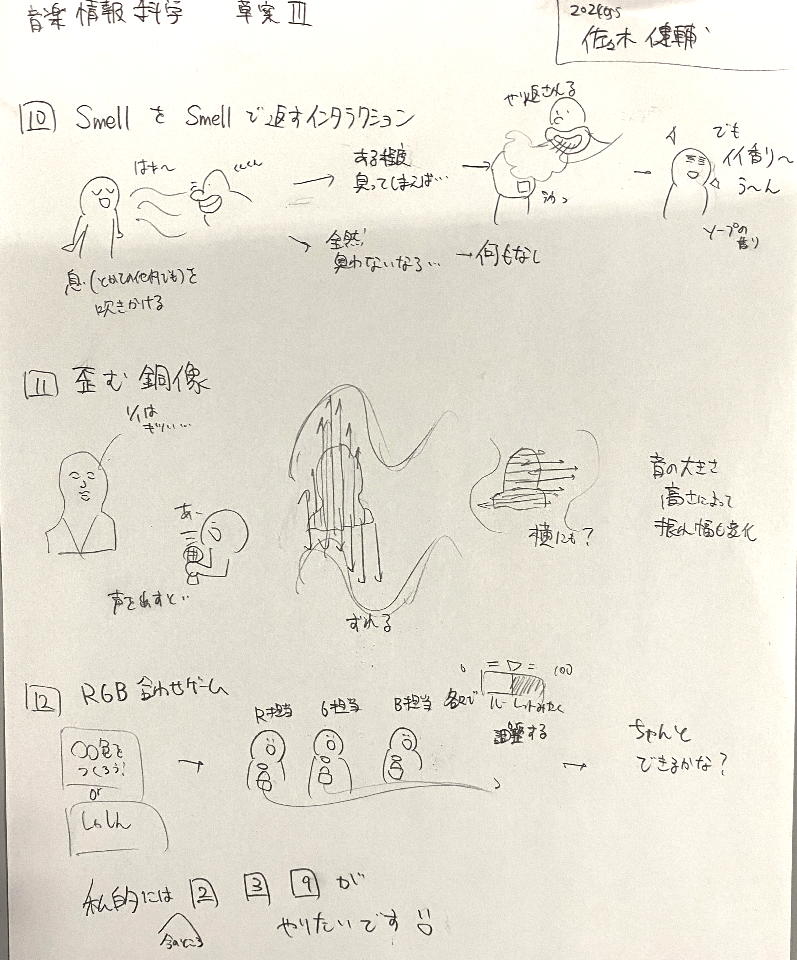 音楽情報科学 草案 III
佐々木 健輔
10 Smell を Smell で返すインタラクション
はぁ〜
くんくん
ある程度
臭ってしまえば…
やり返さんる
でも
イイ香り〜
う〜ん
ソープの
香り
全然
臭わないなら… → 何もなし
息(とかその他何でも)を
吹きかける
11 歪む銅像
1/1は
キツい…
あー
声を出すと…
ずれる
横にも?
音の大きさ
高さによって
振れ幅も変化
12 RGB合わせゲーム
〇〇色を
つくろう!
or
しゃしん
R担当 G担当 B担当 各々で
0 100
ルーレットみたく
調整する
ちゃんと
できるかな?
私的には 2 3 9 が
今のところ
やりたいです